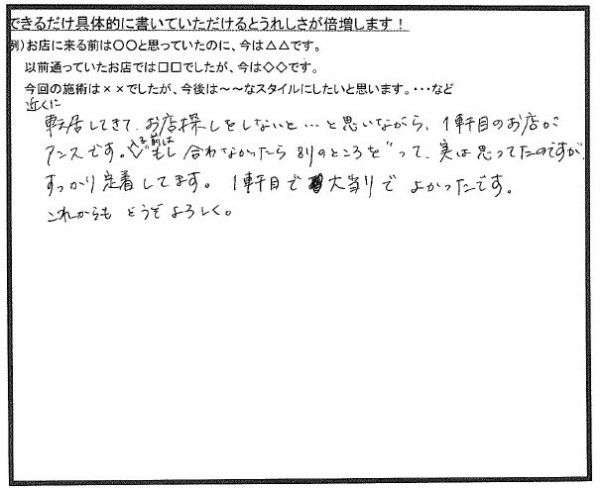 できるだけ具体的に書いていただけるとうれしさが倍増します！
例）お店に来る前は〇〇と思っていたのに、今は△△です。
以前通っていたお店では□□でしたが、今は◇◇です。
今回の施術は××でしたが、今後は～～なスタイルにしたいと思います。・・・など
近くに
転居してきて、お店探しをしないと…と思いながら、1軒目のお店が
アンスです。入る前は"もし合わなかったら別のところを"って、実は思ってたのですが
すっかり定着してます。1軒目で大当りでよかったです。
これからもどうぞよろしく。